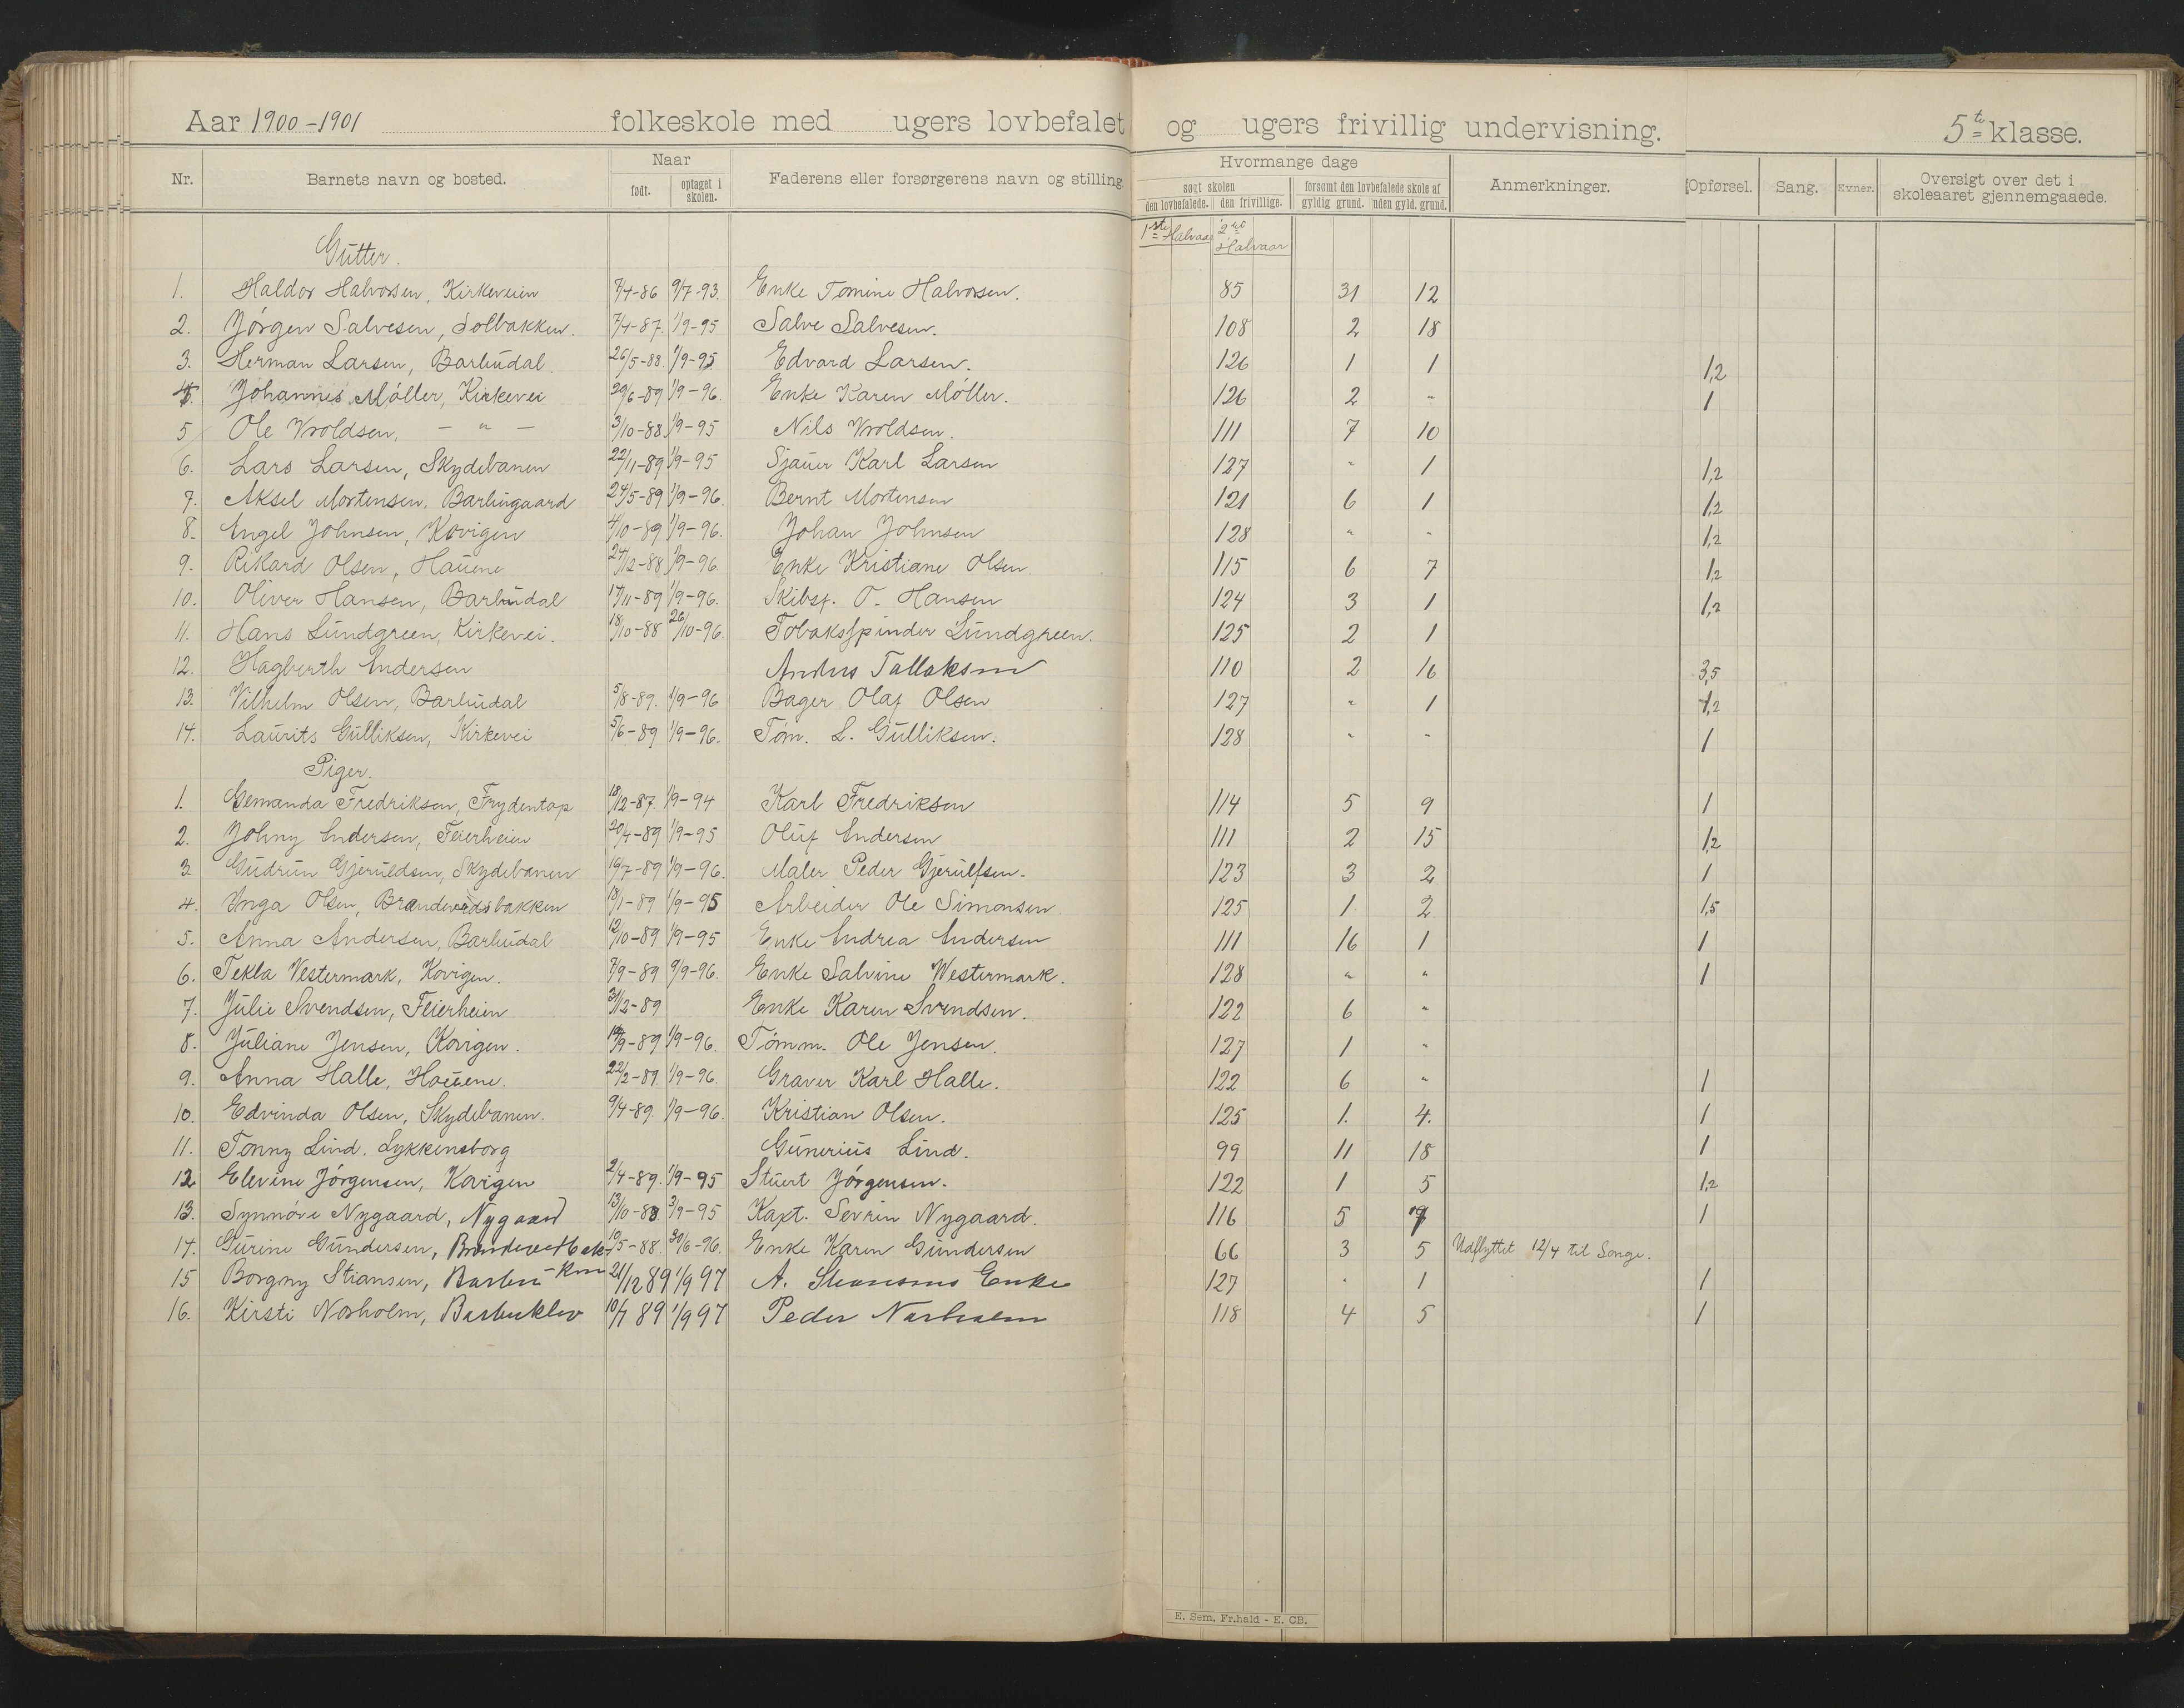 Aar 1900-1901 folkeskole med ugers lovbefalet og ugers frivillig undervisning. 5te klasse.
Nr. Barnets navn og bosted. Naar Faderens eller forsørgerens navn og stilling Hvormange dage Anmerkninger. Opførsel. Sang. Evner. Oversigt over det i skoleaaret gjennemgaaede.
født. optaget i skolen. søgt skolen forsømt den lovbefalede skole af
den lovbefalede. den frivillige. gyldig grund. uden gyld. grund.
1ste Halvaar 2det Halvaar
Gutter.
1. Haldor Halvorsen, Kirkeveien 7/4-86 9/7-93. Enke Tomine Halvorsen. 85 31 12
2. Jörgen Salvesen, Solbakken. 7/4-87. 1/9-95 Salve Salvesen. 108 2 18
3. Herman Larsen, Barbudal. 26/5-88. 1/9-95 Edvard Larsen. 126 1 1 1,2
4. Johannes Møller, Kirkevei 29/6-89 1/9-96. Enke Karen Møller. 126 2 " 1
5 Ole Vroldsen, - " - 3/10-88 1/9-95 Nils Vroldsen. 111 7 10
6. Lars Larsen, Skydebanen 22/11-89 1/9-95 Sjauer Karl Larsen 127 " 1 1,2
7. Aksel Mortensen, Barbugaard 24/5-89 1/9-96. Bernt Mortensen 121 6 1 1,2
8. Engel Johnsen, Kovigen 4/10-89 1/9-96. Johan Johnsen 128 " " 1,2
9. Rikard Olsen, Hauene 24/12-88 1/9-96 Enke Kristiane Olsen 115 6 7 1,2
10. Oliver Hansen, Barbudal 17/11-89 1/9-96. Skibsf. O. Hansen 124 3 1 1,2
11. Hans Lundgreen, Kirkevei. 18/10-88 26/10-96. Tobaksspinder Lundgreen. 125 2 1
12. Hagberth Andersen Anders Tallaksen 110 2 16 3,5
13. Vilhelm Olsen, Barbudal 5/8-89. 1/9-96 Bager Olaf Olsen 127 " 1 1,2
14. Laurits Gulliksen, Kirkevei 5/6-89 1/9-96. Tøm. L. Gulliksen. 128 " " 1
Piger.
1. Gemanda Fredriksen, Frydentop 18/12-87. 1/9-94 Karl Fredriksen 114 5 9 1
2. Johny Andersen, Feierheien 20/4-89 1/9-95 Oluf Andersen 111 2 15 1,2
3. Gudrun Gjeruldsen, Skydebanen 16/7-89 1/9-96. Maler Peder Gjerulfsen. 123 3 2 1
4. Inga Olsen, Brandevedsbakken 18/1-89 1/9-95 Arbeider Ole Simonsen 125 1 2 1,5
5. Anna Andersen, Barbudal 12/10-89 1/9-95 Enke Andrea Andersen 111 16 1 1
6. Tekla Vestermark, Kovigen. 7/9-89 9/9-96. Enke Salvine Westermark. 128 " " 1
7. Julie Svendsen, Feierheien 31/12-89 Enke Karen Svendsen. 122 6 "
8. Juliane Jensen, Kovigen. 19/9-89 1/9-96. Tømm. Ole Jensen. 127 1 "
9. Anna Halle, Hauene. 22/2-89. 1/9-96. Graver Karl Halle. 122 6 " 1
10. Edvinda Olsen, Skydebanen. 9/4-89. 1/9-96. Kristian Olsen. 125 1. 4. 1
11. Tonny Lind. Lykkensborg Gunerius Lind. 99 11 18 1
12 Elevine Jörgensen, Kovigen 2/4-89. 1/9-95 Stuert Jörgensen. 122 1 5 1,2
13. Synnöve Nygaard, Nygaard 13/10-88 3/9-95 Kapt. Sevrin Nygaard. 116 5 1
14. Gurine Gundersen, Brandevedbak-ken 10/5-88. 30/6-96. Enke Karen Gundersen 66 3 5 Udflyttet 12/4 til Songe.
15 Borgny Stiansen, Barbu 21/12 89 1/9 97 A. Stiansens Enke 127 " 1 1
16. Kirsti Norholm, Barbuklev 10/7 89 1/9 97 Peder Norholm 118 4 5 1
E. Sem, Fr.hald - E. CB.